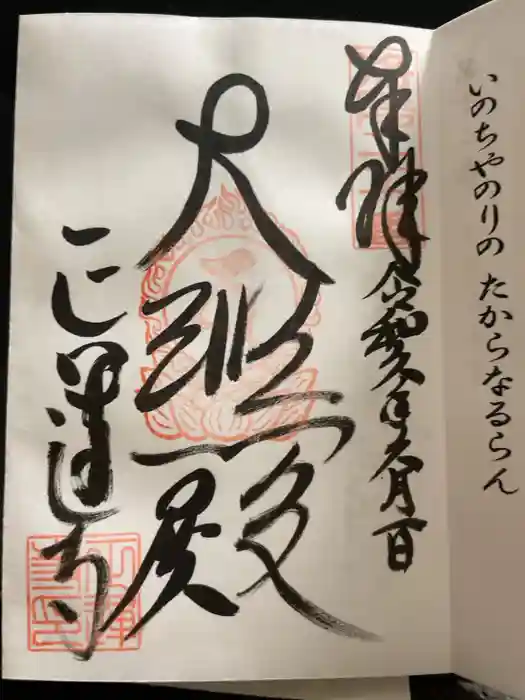 いのちやのりの たからなるらん
奉拝 令和 年 月 日
大悲殿
正運寺